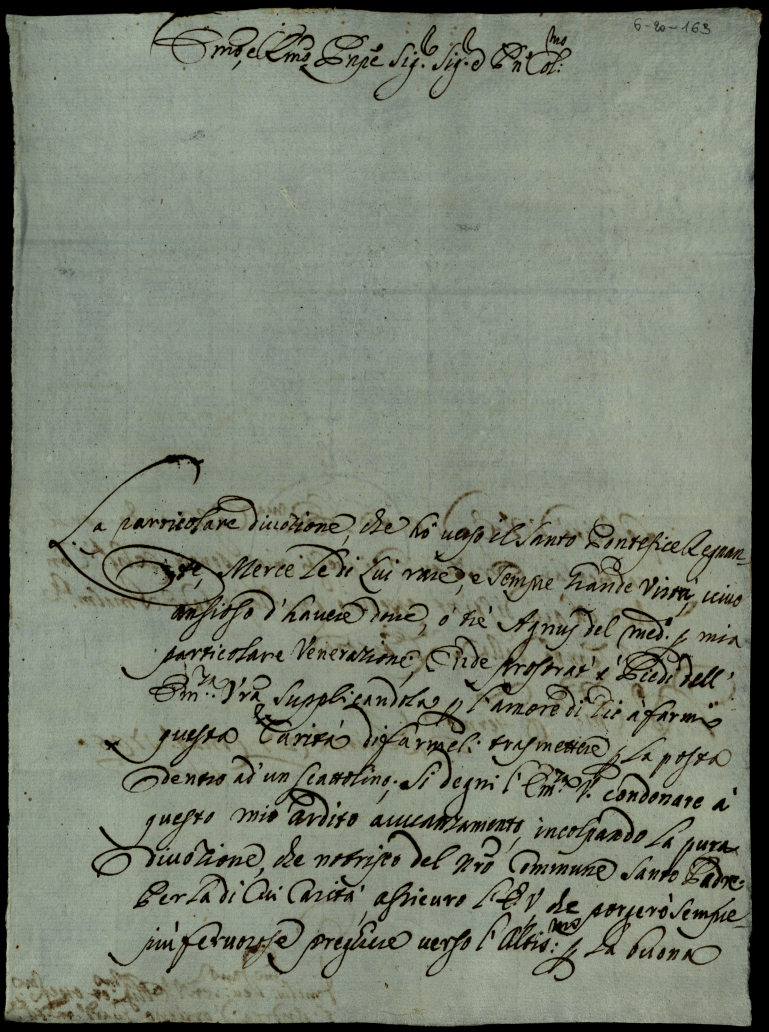 6-20-163
Emo, e Rmo Pnpe Sig.r Sig.r e Pne Col:mo
La particolare divozione, che hò verso il Santo Pontefice Regnan-
te, Mercè le di Lui rare, e sempre grande Virtù, vivo
ansioso d'havere due, ó tré Agnus del med.o p mia
particolare Venerazione, Vnde prostrat' a' Piedi dell'
Em.za V'ra supplicandola p l'amore di Dio à farmi
questa Carità di farmeli trasmettere p la posta
dentro ad' un scattolino. Si degni l'Em.za V. condonare à
questo mio ardito avvanzamento, incolpando la pura
divozione, che notrisco del nrõ Commune Santo Padre.
Per la di Lui Carità, assicuro l'E V che porgerò sempre
più fervorose preghiere verso l'Altis:mo p la buona